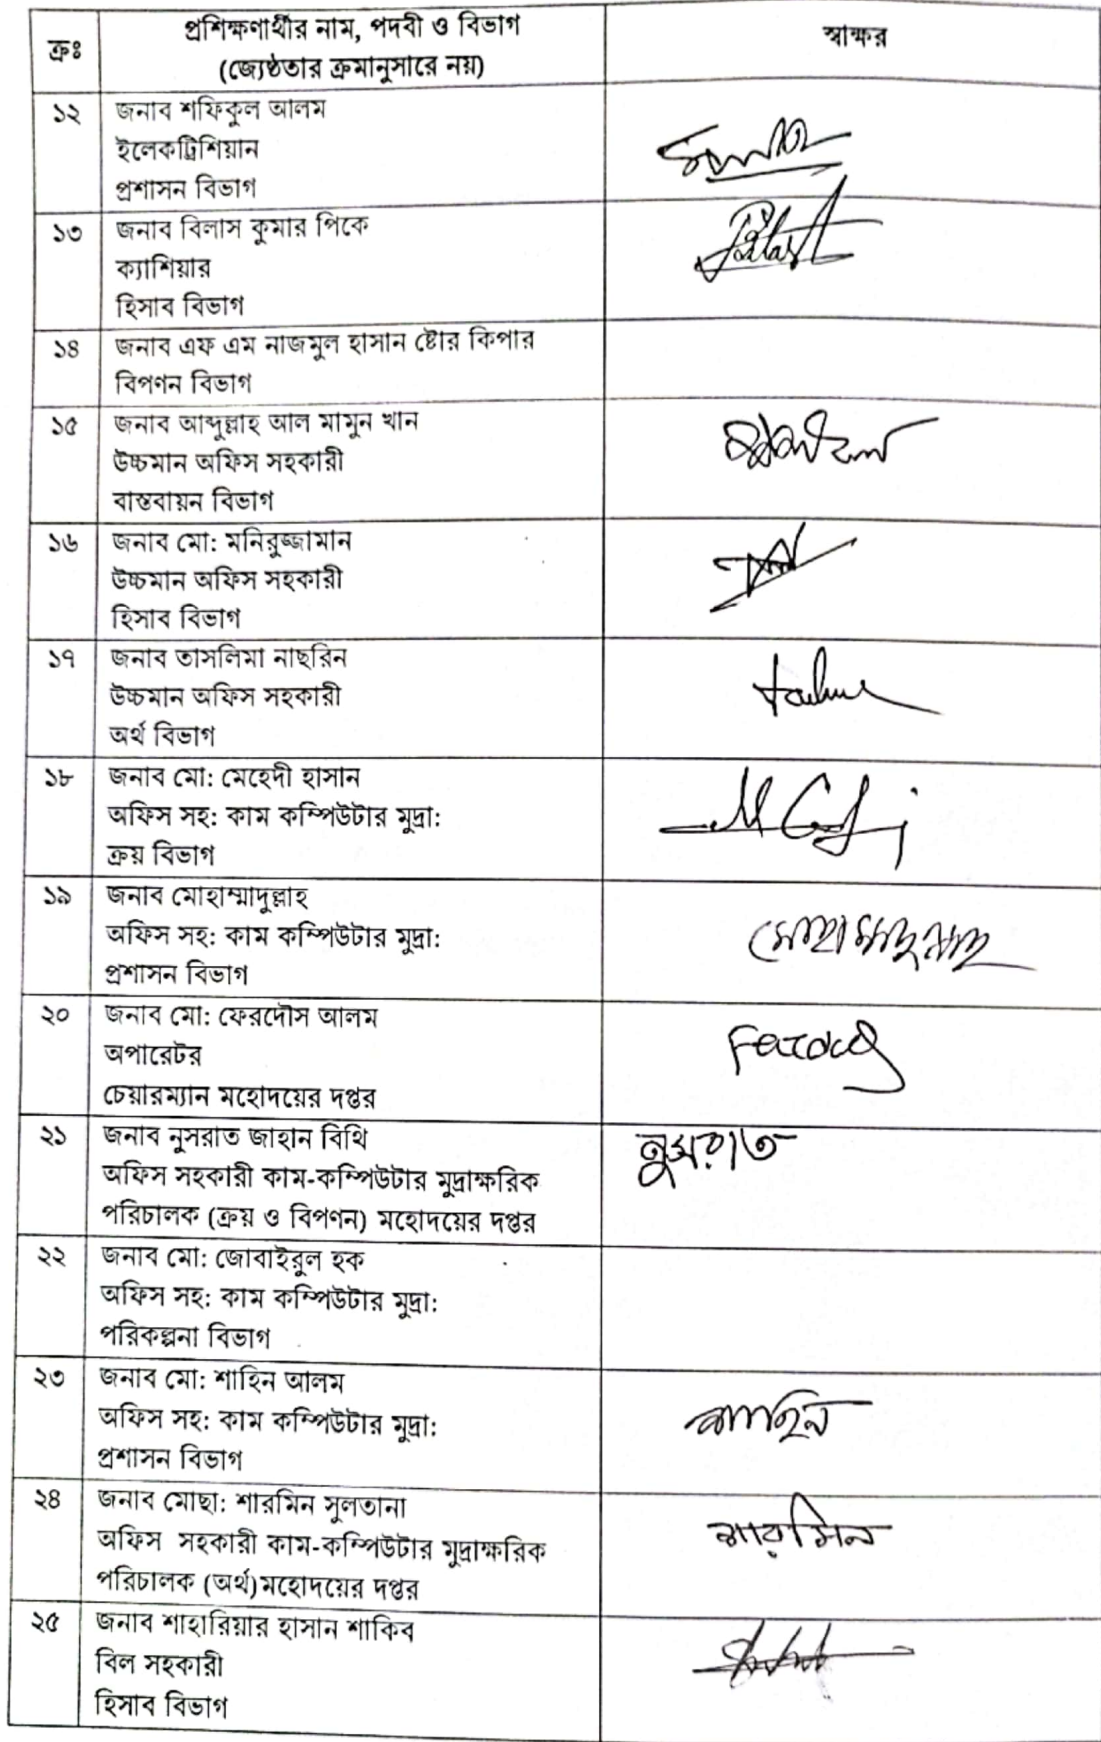 ক্রঃ
প্রশিক্ষণার্থীর নাম, পদবী ও বিভাগ
(জ্যেষ্ঠতার ক্রমানুসারে নয়)
স্বাক্ষর
১২
জনাব শফিকুল আলম
ইলেকট্রিশিয়ান
প্রশাসন বিভাগ
১৩
জনাব বিলাস কুমার পিকে
ক্যাশিয়ার
হিসাব বিভাগ
১৪
জনাব এফ এম নাজমুল হাসান ষ্টোর কিপার
বিপণন বিভাগ
১৫
জনাব আব্দুল্লাহ আল মামুন খান
উচ্চমান অফিস সহকারী
বাস্তবায়ন বিভাগ
১৬
জনাব মো: মনিরুজ্জামান
উচ্চমান অফিস সহকারী
হিসাব বিভাগ
১৭
জনাব তাসলিমা নাছরিন
উচ্চমান অফিস সহকারী
অর্থ বিভাগ
১৮
জনাব মো: মেহেদী হাসান
অফিস সহ: কাম কম্পিউটার মুদ্রা:
ক্রয় বিভাগ
১৯
জনাব মোহাম্মাদুল্লাহ
অফিস সহ: কাম কম্পিউটার মুদ্রা:
প্রশাসন বিভাগ
মোহাম্মাদুল্লাহ
২০
জনাব মো: ফেরদৌস আলম
অপারেটর
চেয়ারম্যান মহোদয়ের দপ্তর
২১
জনাব নুসরাত জাহান বিথি
অফিস সহকারী কাম-কম্পিউটার মুদ্রাক্ষরিক
পরিচালক (ক্রয় ও বিপণন) মহোদয়ের দপ্তর
নুসরাত
২২
জনাব মো: জোবাইরুল হক
অফিস সহ: কাম কম্পিউটার মুদ্রা:
পরিকল্পনা বিভাগ
২৩
জনাব মো: শাহিন আলম
অফিস সহ: কাম কম্পিউটার মুদ্রা:
প্রশাসন বিভাগ
শাহিন
২৪
জনাব মোছা: শারমিন সুলতানা
অফিস সহকারী কাম-কম্পিউটার মুদ্রাক্ষরিক
পরিচালক (অর্থ)মহোদয়ের দপ্তর
শারমিন
২৫
জনাব শাহারিয়ার হাসান শাকিব
বিল সহকারী
হিসাব বিভাগ